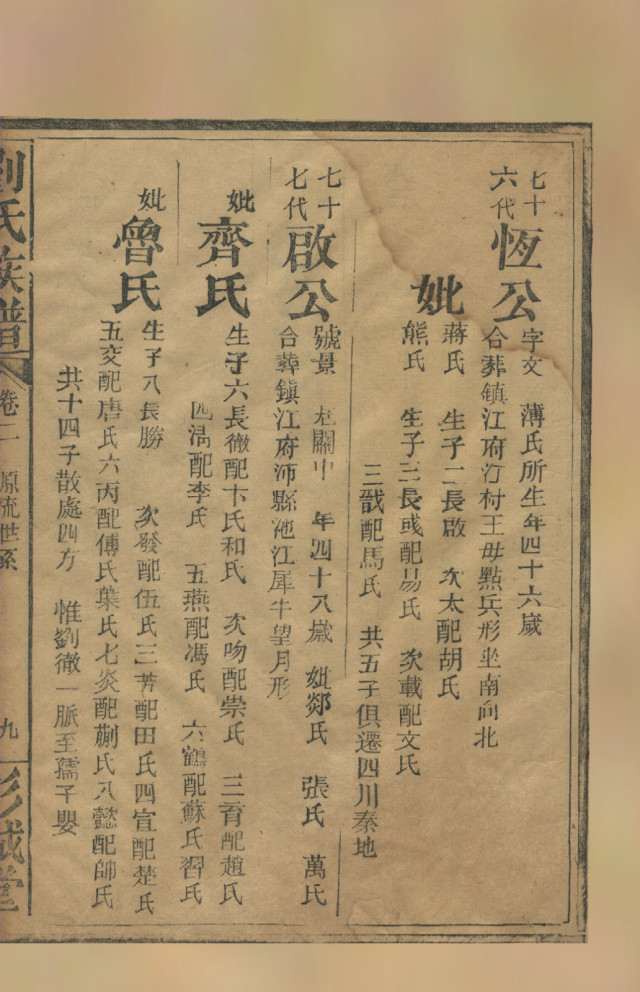 七十六代
恆公
字文 薄氏所生年四十六嵗
合葬鎮江府汀村王毋點兵形坐南向北
妣
蔣氏 生子二長啟 次太配胡氏
熊氏 生子三長彧配易氏 次載配文氏
三戩配馬氏 共五子俱遷四川秦地
七十七代
啟公
號景 老關中 年四十八嵗 妣郯氏 張氏 萬氏
合葬鎮江府沛縣池江犀牛望月形
妣
齊氏
生子六長徹配卞氏和氏 次吻配崇氏 三育配趙氏
四滆配李氏 五燕配馮氏 六鶴配蘇氏習氏
妣
魯氏
生子八長勝 次發配伍氏三芳配田氏四宣配楚氏
五交配唐氏六丙配傅氏葉氏七炎配蒯氏八懿配帥氏
共十四子散處四方 惟劉徹一脈至孺子嬰
劉氏族譜
卷二 原流世系
九
彭城堂